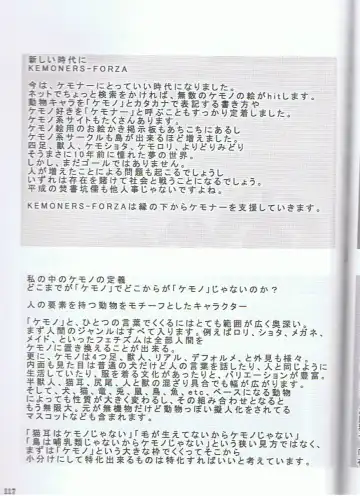 新しい時代に
KEMONERS-FORZA
今は、ケモナーにとっていい時代になりました。
ネットでちょっと検索をかければ、無数のケモノの絵がhitします。
動物キャラを「ケモノ」とカタカナで表記する書き方や
ケモノ好きを「ケモナー」と呼ぶこともすっかり定着しました。
ケモノ系サイトもたくさんあります。
ケモノ絵用のお絵かき掲示板もあちこちにあるし
ケモノ系サークルも島が出来るほど増えました。
四足、獣人、ケモショタ、ケモロリ、よりどりみどり
そうまさに10年前に憧れた夢の世界。
しかし、まだゴールではありません。
人が増えたことによる問題も起こるでしょうし
いずれは存在を賭けて社会と戦うことになるでしょう。
平成の焚書坑儒も他人事じゃないですよね。
KEMONERS-FORZAは縁の下からケモナーを支援していきます。
私の中のケモノの定義
どこまでが「ケモノ」でどこからが「ケモノ」じゃないのか?
人の要素を持つ動物をモチーフとしたキャラクター
「ケモノ」と、ひとつの言葉でくくるにはとても範囲が広く奥深い。
まず人間のジャンルはすべて入ります。例えばロリ、ショタ、メガネ、
メイド、といったフェチズムは全部人間を
ケモノに置き換えることが出来る。
更に、ケモノは4つ足、獣人、リアル、デフォルメ、と外見も様々。
内面も見た目は普通の犬だけど人の言葉を話したり、人と同じように
生活していたり、服を着る文化があったりと、バリエーションが豊富。
半獣人、猫耳、尻尾、人と獣の混ざり具合でも幅が広がります。
そして、犬、猫、竜、兎、鼠、鳥、魚、etc、ベースになる動物
によっても性質が大きく変わるし、その組み合わせとなると
もう無限大。元が無機物だけど動物っぽい擬人化をされてる
マスコットなども含まれます。
「猫耳はケモノじゃない」「毛が生えてないからケモノじゃない」
「鳥は哺乳類じゃないからケモノじゃない」という狭い見方ではなく、
まずは「ケモノ」という大きな枠でくくってそこから
小分けにして特化出来るものは特化すればいいと考えています。